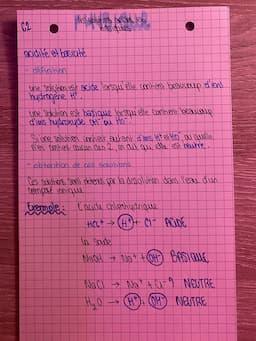 C2
acidité et basicité
- définition
une solution est acide lorsqu'elle contient beaucoup d'ions
hydrogène H⁺.
une solution est basique lorsqu'elle contient beaucoup
d'ions hydroxyde OH⁻ ou HO⁻.
Si une solution contient autant d'ions H⁺ et HO⁻, ou qu'elle
n'en contient aucun des 2, on dit qu'elle est neutre.
- obtention de ces solutions
Ces solutions sont obtenues par la dissolution dans l'eau d'un
composé ionique
Exemple : L'acide chlorhydrique
HCl → H⁺ + Cl⁻ ACIDE
la soude
NaOH → Na⁺ + OH⁻ BASIQUE
NaCl → Na⁺ + Cl⁻ NEUTRE
H₂O → H⁺ + OH⁻ NEUTRE